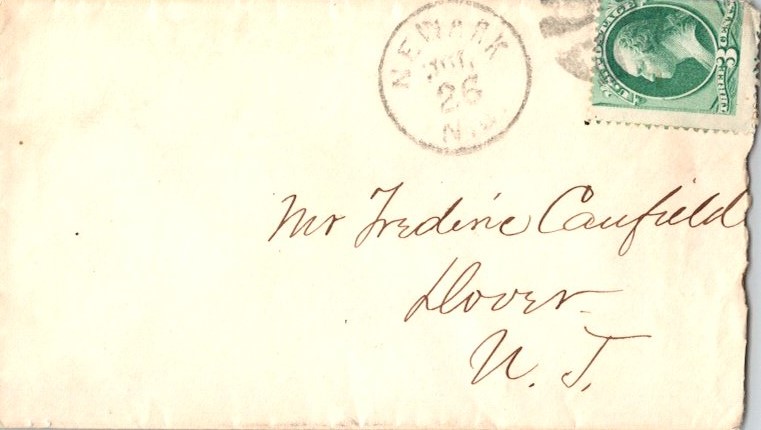 NEWARK
JUL
26
N.J.
3
Mr Frederic Caufield
Dover
N. J.